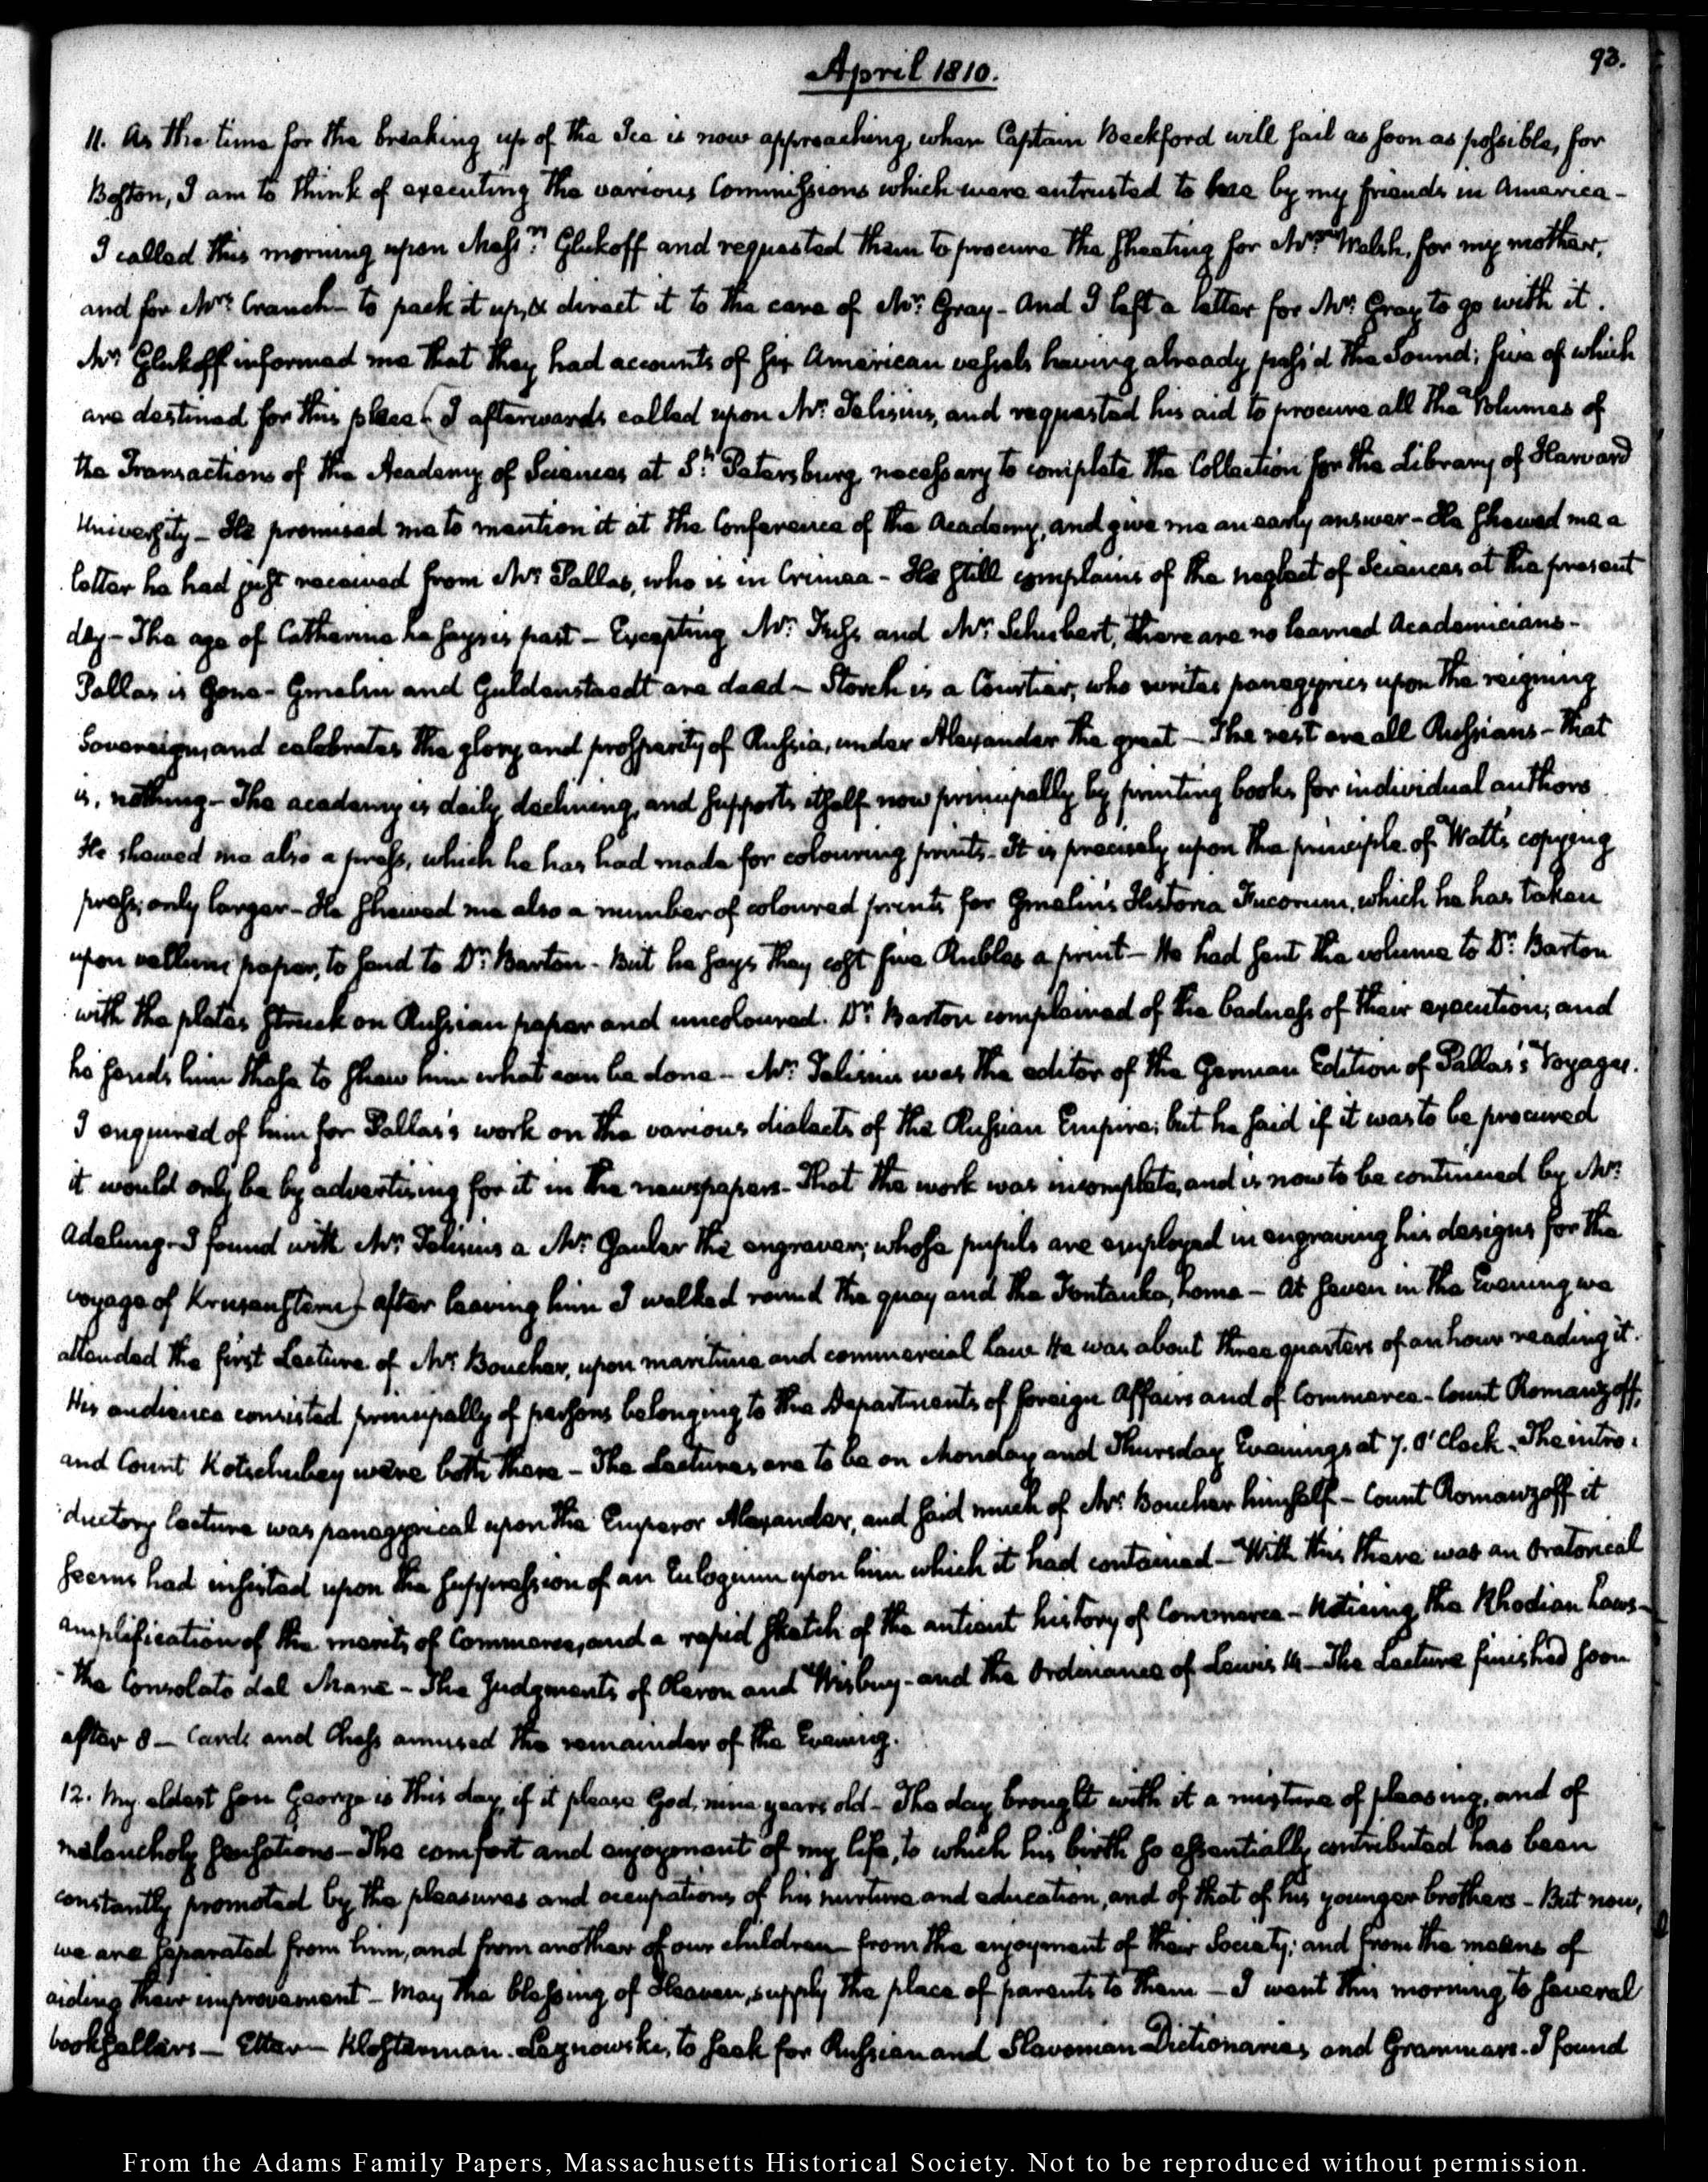 April 1810.
93.
11. As the time for the breaking up of the Ice is now approaching, when Captain Beckford will sail as soon as possible, for
Boston, I am to think of executing the various Commissions which were entrusted to me by my friends in America -
I called this morning upon Messrs. Glukoff and requested them to procure the sheeting for Mrs. Welsh, for my mother,
and for Mrs. Cranch - to pack it up, & direct it to the care of Mr. Gray - And I left a letter for Mr. Gray to go with it.
Mr. Glukoff informed me that they had accounts of six American vessels having already pass'd the Sound; five of which
are destined for this place (I afterwards called upon Mr. Telisius, and requested his aid to procure all the Volumes of
the Transactions of the Academy of Sciences at St. Petersburg, necessary to complete the Collection for the Library of Harvard
University - He promised me to mention it at the Conference of the Academy, and give me an early answer - He shewed me a
letter he had just received from Mr. Pallas, who is in Crimea - He still complains of the neglect of Sciences at the present
day - The age of Catherine he says is past - Excepting Mr. Fuss and Mr. Schubert, there are no learned Academicians -
Pallas is gone - Gmelin and Guldenstaedt are dead - Storch is a Courtier, who writes panegyrics upon the reigning
Sovereign, and celebrates the glory and prosperity of Russia, under Alexander the great - The rest are all Russians - that
is, nothing - The academy is daily declining, and supports itself now principally by printing books for individual authors
He shewed me also a press, which he has had made for colouring prints - It is precisely upon the principle of Watt's copying
press; only larger - He shewed me also a number of coloured prints for Gmelin's Historia Fucorum, which he has taken
upon vellum paper, to send to Dr. Barton - But he says they cost five Rubles a print - He had sent the volume to Dr. Barton
with the plates struck on Russian paper and uncoloured. Dr. Barton complained of the badness of their execution; and
he sends him these to shew him what can be done - Mr. Telisius was the editor of the German Edition of Pallas's Voyages.
I enquired of him for Pallas's work on the various dialects of the Russian Empire; but he said if it was to be procured
it would only be by advertising for it in the newspapers - That the work was incomplete, and is now to be continued by Mr.
Adelung - I found with Mr. Telisius a Mr. Gauber the engraver; whose pupils are employed in engraving his designs for the
voyage of Krusenstern) after leaving him I walked round the quay and the Fontanka, home - At seven in the Evening we
attended the first Lecture of Mr. Boucher, upon maritime and commercial Law He was about three quarters of an hour reading it.
His audience consisted principally of persons belonging to the Departments of foreign Affairs and of Commerce - Count Romanzoff,
and Count Kotschubey were both there - The Lectures are to be on Monday and Thursday Evenings at 7. O'Clock - The intro-
ductory lecture was panegyrical upon the Emperor Alexander, and said much of Mr. Boucher himself - Count Romanzoff it
seems had insisted upon the suppression of an Eulogium upon him which it had contained - With this there was an Oratorical
amplification of the merits of Commerce, and a rapid sketch of the antient history of Commerce - Noticing the Rhodian Laws -
the Consolato del Mare - The Judgments of Oleron and Wisbuy - and the Ordinance of Lewis 14 - The Lecture finished soon
after 8 - Cards and Chess amused the remainder of the Evening.
12. My eldest son George is this day, if it please God, nine years old - The day brought with it a mixture of pleasing, and of
melancholy sensations - The comfort and enjoyment of my life, to which his birth so essentially contributed has been
constantly promoted by the pleasures and occupations of his nurture and education, and of that of his younger brothers - But now,
we are separated from him, and from another of our children - from the enjoyment of their Society; and from the means of
aiding their improvement - May the blessing of Heaven, supply the place of parents to them - I went this morning to several
booksellers - Etter - Klosterman - Leznowski, to seek for Russian and Slavonian Dictionaries and Grammars. I found
From the Adams Family Papers, Massachusetts Historical Society. Not to be reproduced without permission.